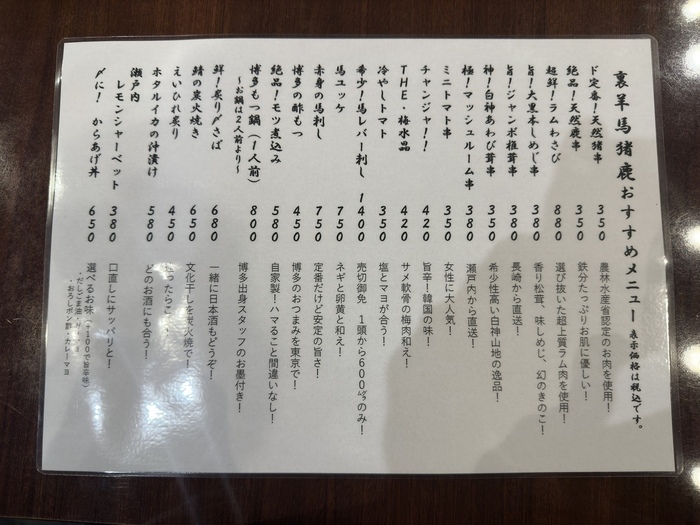 裏羊馬猪鹿おすすめメニュー 表示価格は税込です。
ド定番！天然猪串 350 農林水産省認定のお肉を使用！
絶品！天然鹿串 350 鉄分たっぷりお肌に優しい！
超鮮！ラムわさび 880 選び抜いた超上質ラム肉を使用！
旨！大黒本しめじ串 380 香り松茸、味しめじ、幻のきのこ！
旨！ジャンボ椎茸串 380 長崎から直送！
神！白神あわび茸串 350 希少性高い白神山地の逸品！
極！マッシュルーム串 380 瀬戸内から直送！
ミニトマト串 350 女性に大人気！
チャンジャ！！ 420 旨辛！韓国の味！
THE・梅水晶 420 サメ軟骨の梅肉和え！
冷やしトマト 350 塩とマヨが合う！
希少！馬レバー刺し 1400 売切御免 1頭から600㌘のみ！
馬ユッケ 750 ネギと卵黄と和え！
赤身の馬刺し 750 定番だけど安定の旨さ！
博多の酢もつ 450 博多のおつまみを東京で！
絶品！モツ煮込み 580 自家製！ハマること間違いなし！
博多もつ鍋（1人前） 800 博多出身スタッフのお墨付き！
～お鍋は2人前より～
鮮！炙り〆さば 680 一緒に日本酒もどうぞ！
鯖の炭火焼き 650 文化干しを炭火焼で！
えいひれ炙り 450
ホタルイカの沖漬け 580 どのお酒にも合う！
瀬戸内
レモンシャーベット 380 口直しにサッパリと！
〆に！ からあげ丼 650 選べるお味（+100で旨辛味）
・おろしポン酢・カレーマヨ